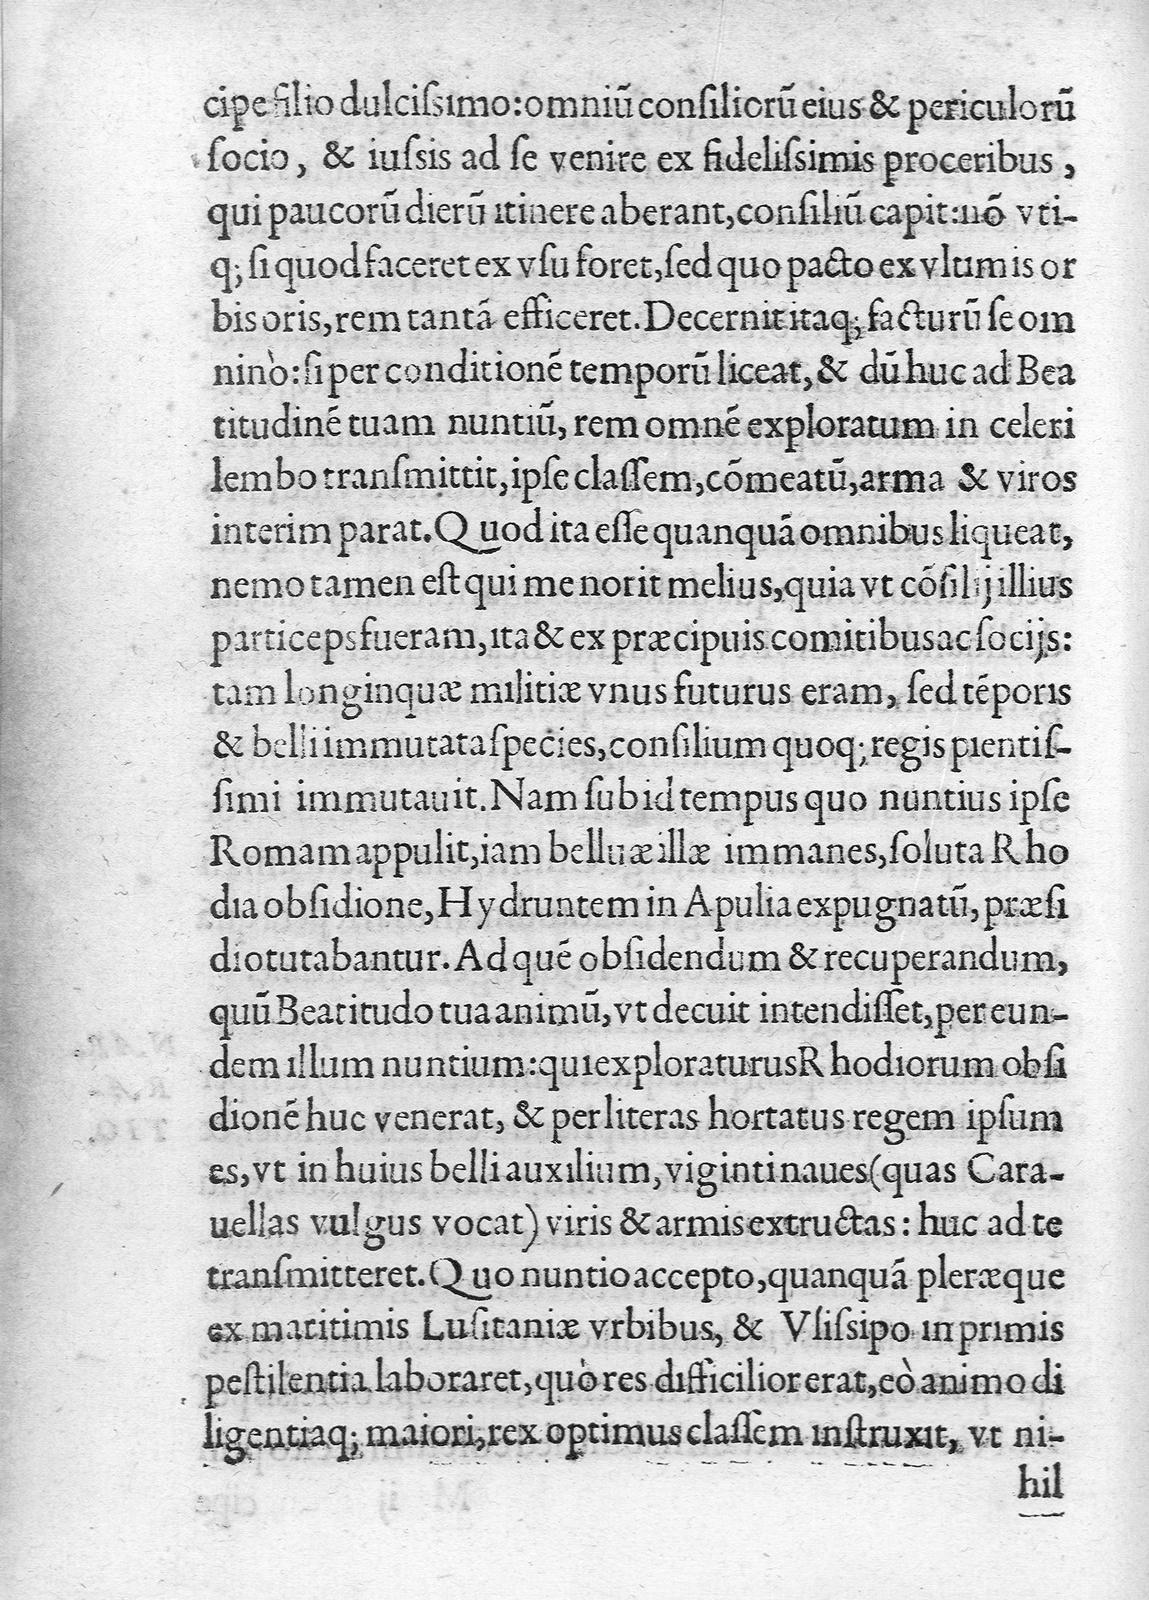 cipe filio dulciſsimo: omniū conſiliorū eius & periculorū
ſocio, & iuſsis ad ſe venire ex fideliſsimis proceribus,
qui paucorū dierū itinere aberant, conſiliū capit: nō vti-
q; ſi quod faceret ex vſu foret, ſed quo pacto ex vltumis or
bis oris, rem tantā efficeret. Decernit itaq; facturū ſe om
ninò: ſi per conditionē temporū liceat, & dū huc ad Bea
titudinē tuam nuntiū, rem omnē exploratum in celeri
lembo tranſmittit, ipſe claſſem, cōmeatū, arma & viros
interim parat. Quod ita eſſe quanquā omnibus liqueat,
nemo tamen eſt qui me norit melius, quia vt cōſilij illius
particeps fueram, ita & ex præcipuis comitibus ac ſocijs:
tam longinquæ militiæ vnus futurus eram, ſed tēporis
& belli immutata ſpecies, conſilium quoq; regis pientiſ-
ſimi immutauit. Nam ſub id tempus quo nuntius ipſe
Romam appulit, iam belluæ illæ immanes, ſoluta Rho
dia obſidione, Hydruntem in Apulia expugnatū, præſi
dio tutabantur. Ad quē obſidendum & recuperandum,
quū Beatitudo tua animū, vt decuit intendiſſet, per eun-
dem illum nuntium: qui exploraturus Rhodiorum obſi
dionē huc venerat, & per literas hortatus regem ipſum
es, vt in huius belli auxilium, viginti naues (quas Cara-
uellas vulgus vocat) viris & armis extructas: huc ad te
tranſmitteret. Quo nuntio accepto, quanquā pleræque
ex maritimis Luſitaniæ vrbibus, & Vliſsipo in primis
peſtilentia laboraret, quò res difficilior erat, eò animo di
ligentiaq; maiori, rex optimus claſſem inſtruxit, vt ni-
hil